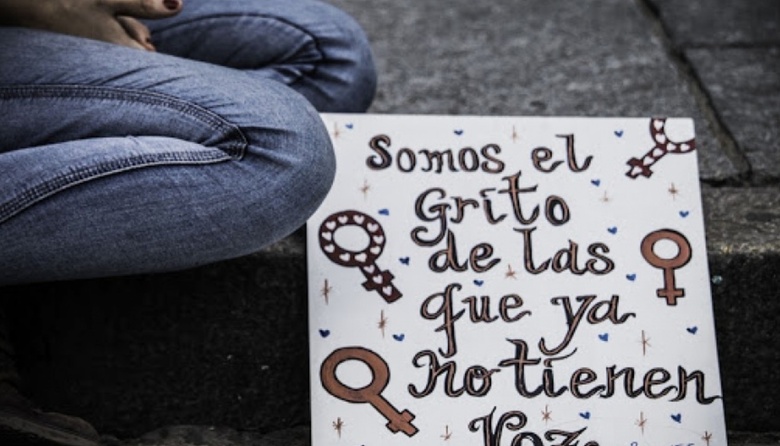 Somos el
Grito
de las
que ya
no tienen
Voz